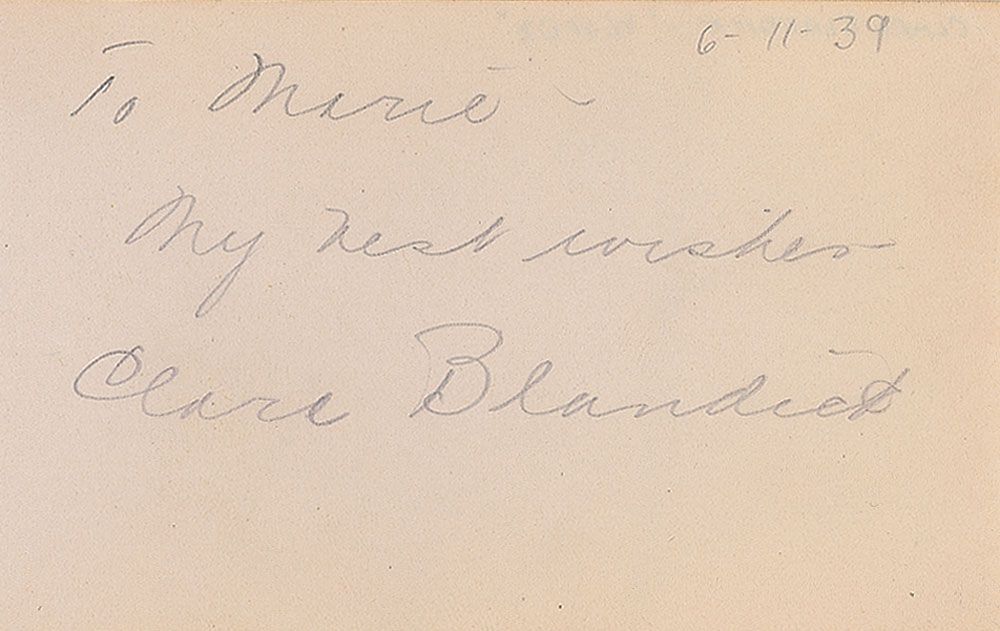 6-11-39
To Marie -
My best wishes
Clara Blandick